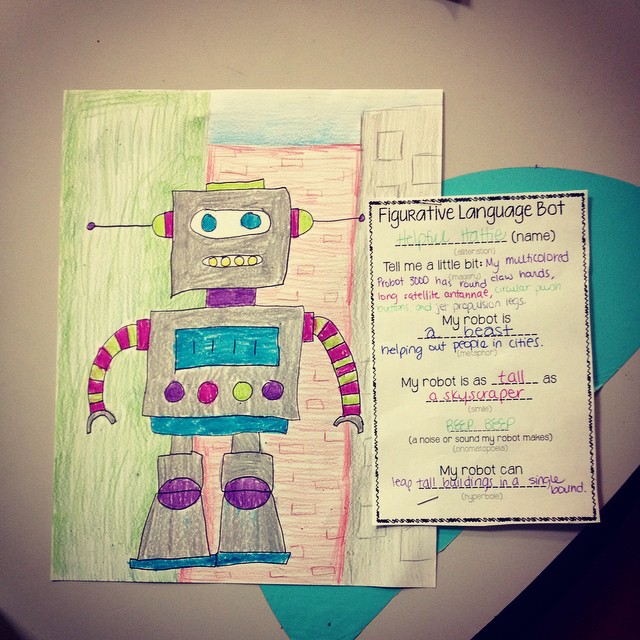 Figurative Language Bot
Helpful Hattie (name)
(alliteration)
Tell me a little bit: My multicolored
(imagery)
Probot 3000 has round claw hands,
long satellite antannae, circular push
buttons and jet propulsion legs.
My robot is
a beast
helping out people in cities.
(metaphor)
My robot is as tall as
a skyscraper
(simile)
BEEP BEEP
(a noise or sound my robot makes)
(onomatopoeia)
My robot can
leap tall buildings in a single
bound.
(hyperbole)